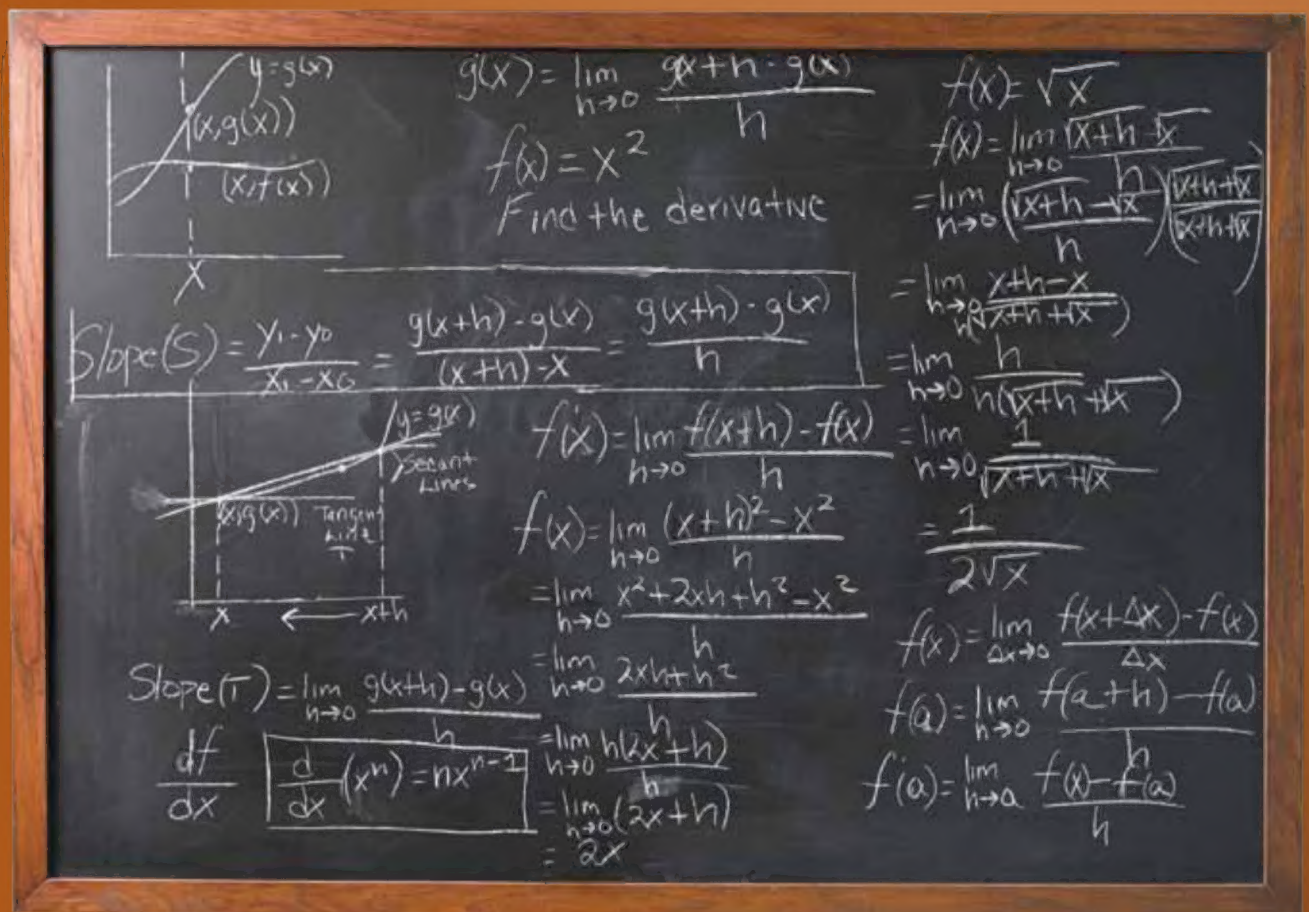 y=g(x)
(x,g(x))
(x,f(x))
x
g(x) = lim h→0 g(x+h - g(x) / h
f(x) = x²
Find the derivative
Slope(S) = y₁-y₀ / x₁-x₀ = g(x+h)-g(x) / (x+h)-x = g(x+h)-g(x) / h
y=g(x)
Secant
Lines
(x,g(x))
Tangent
Line
T
x ← x+h
Slope(T) = lim h→0 g(x+h)-g(x) / h
df/dx
d/dx (xⁿ) = nxⁿ⁻¹
f'(x) = lim h→0 f(x+h)-f(x) / h
f(x) = lim h→0 (x+h)²-x² / h
= lim h→0 x²+2xh+h²-x² / h
= lim h→0 2xh+h² / h
= lim h→0 h(2x+h) / h
= lim h→0 (2x+h)
= 2x
f(x) = √x
f(x) = lim h→0 √x+h-√x / h
= lim h→0 (√x+h-√x / h)(√x+h+√x / √x+h+√x)
= lim h→0 x+h-x / h(√x+h+√x)
= lim h→0 h / h(√x+h+√x)
= lim h→0 1 / √x+h+√x
= 1 / 2√x
f(x) = lim Δx→0 f(x+Δx)-f(x) / Δx
f(a) = lim h→0 f(a+h)-f(a) / h
f'(a) = lim h→a f(x)-f(a) / h